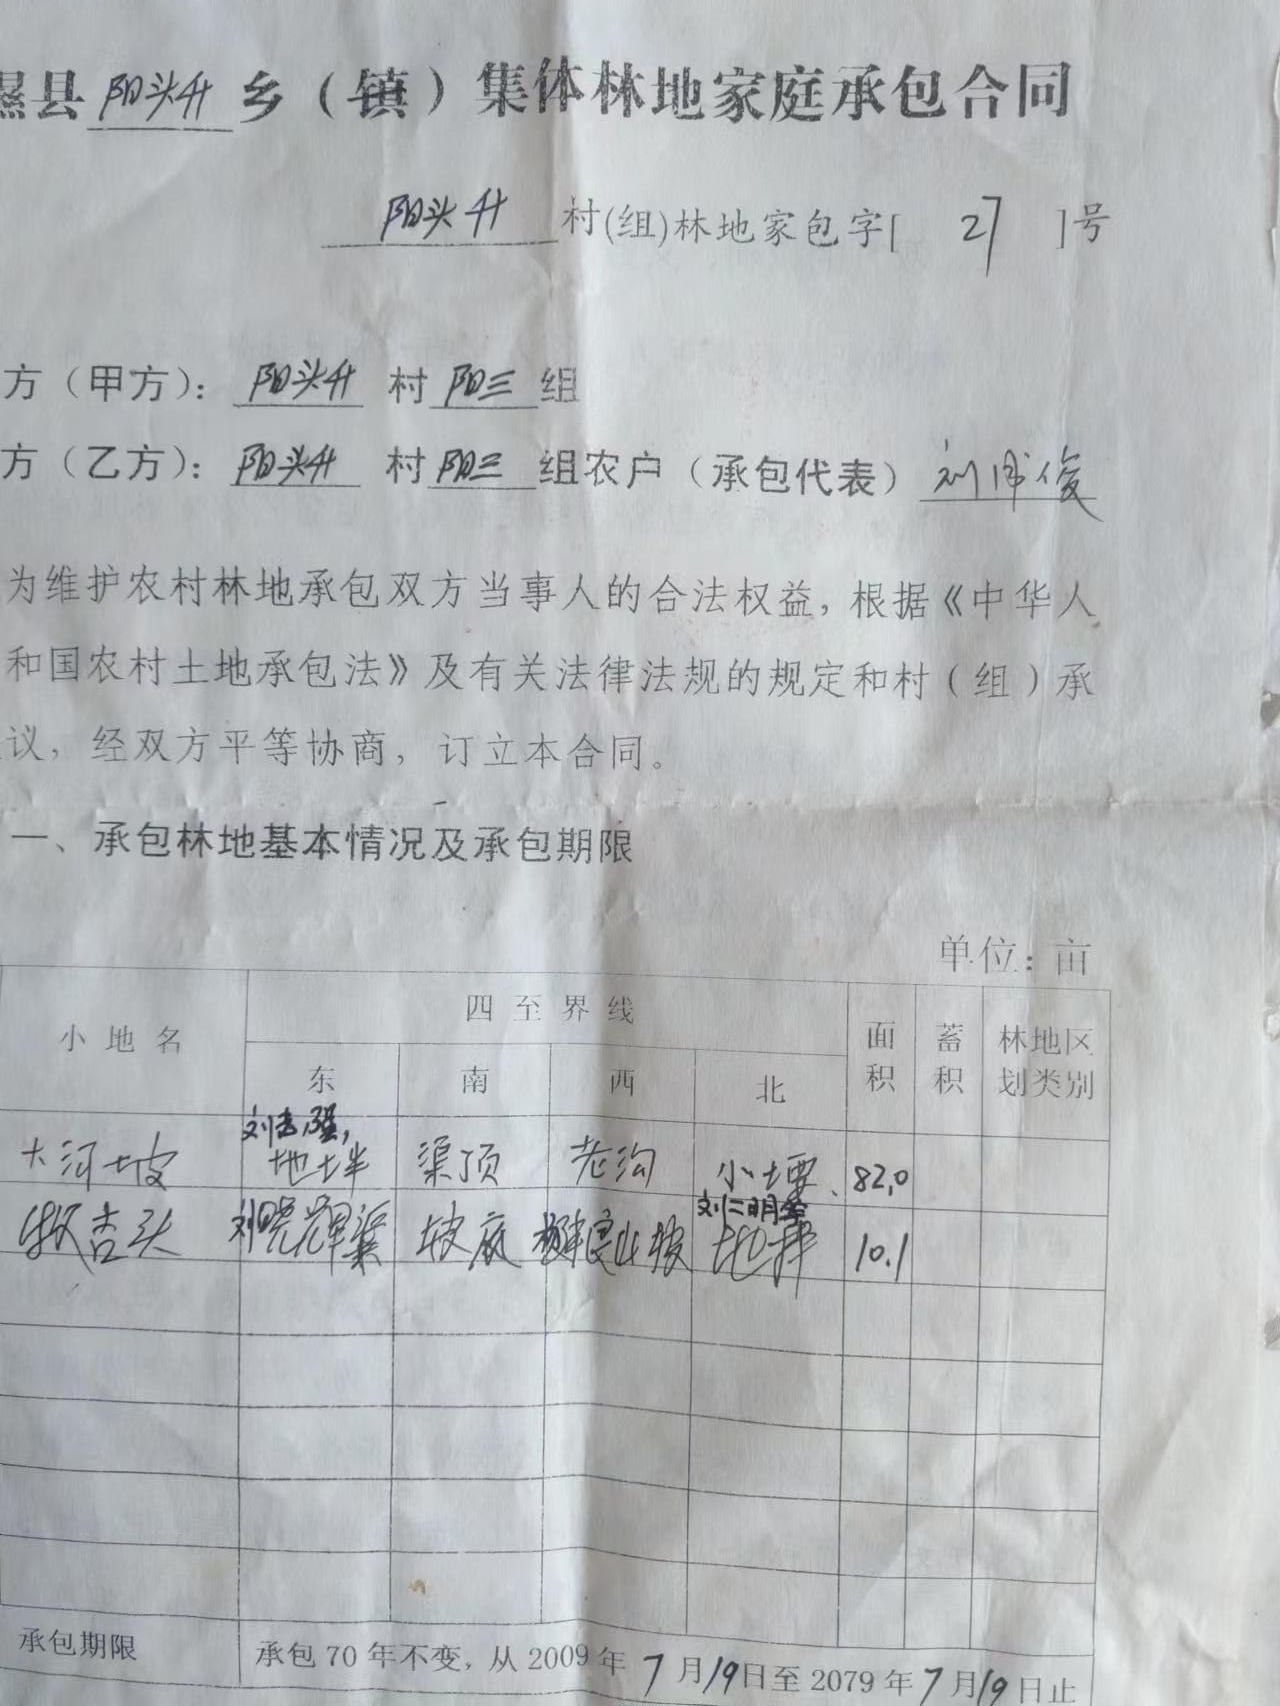 隰县阳头升乡（镇）集体林地家庭承包合同
阳头升村(组)林地家包字[ 27 ]号
方（甲方）：阳头升 村 阳三 组
方（乙方）：阳头升 村 阳三 组农户（承包代表）刘 俊
为维护农村林地承包双方当事人的合法权益，根据《中华人
和国农村土地承包法》及有关法律法规的规定和村（组）承
议，经双方平等协商，订立本合同。
一、承包林地基本情况及承包期限
单位：亩
小地名 四至界线 面积 蓄积 林地区划类别
东 南 西 北
大河坡 刘志强，地坪 渠顶 老沟 小堰、 82.0
杏头 刘晓辉渠 坡底 山坡 刘二明 地坪 10.1
承包期限 承包70年不变，从2009年7月19日至2079年7月19日止